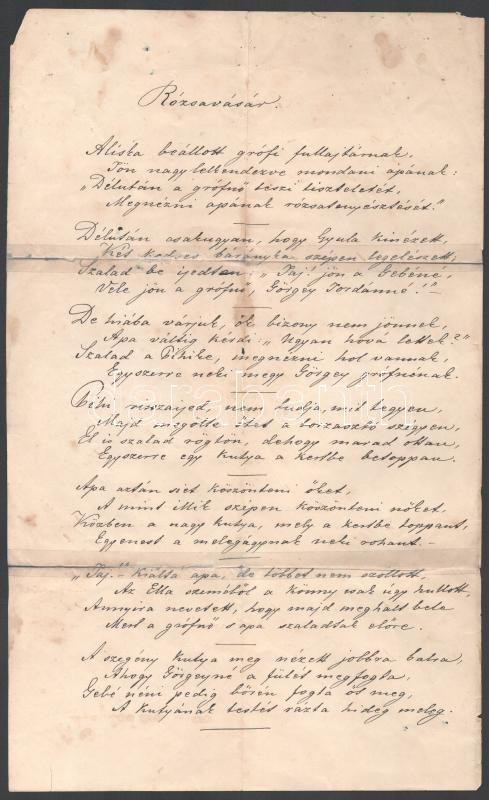 Rózsavásár.
Aliska beállott grófi fullajtárnak,
Jön nagy lelkendezve mondani apának:
"Délután a grófnő teszi tiszteletét,
Megnézni apának rózsatenyésztését."
Délután csakugyan, hogy Gyula kinézett,
Két kedves bárányka szépen legelészett;
Szalad be ijedten: "Jaj! jön a Gebéné,
Vele jön a grófnő, Görgey Jordánné!"-
De hiába várjuk, ők bizony nem jönnek,
Apa váltig kérdi: "Ugyan hová lettek?"
Szalad a Pihike, megnézni hol vannak,
Egyszerre neki megy Görgey grófnénak.
visszaijed, nem tudja, mit tegyen,
Majd megölte őket a borzasztó szégyen,
El is szalad rögtön, dehogy marad ottan,
Egyszerre egy kutya a kertbe betoppan.
Apa aztán siet köszönteni őket,
A mint illik szépen köszönteni nőket,
Közben a nagy kutya, mely a kertbe toppant,
Egyenest a melegágynak neki rohant.-
"Jaj"- kiáltá apa, de többet nem szóllott
Az Ella szeméből a könny csak úgy hullott,
Annyira nevetett, hogy majd meghalt bele
Mert a grófnő s apa szaladtak előre.
A szegény kutya meg nézett jobbra balra,
Ahogy Görgeyné a fülét megfogta,
Gebé néni pedig bőrén fogta ős meg,
A kutyának testét rázta hideg meleg.
darabanth